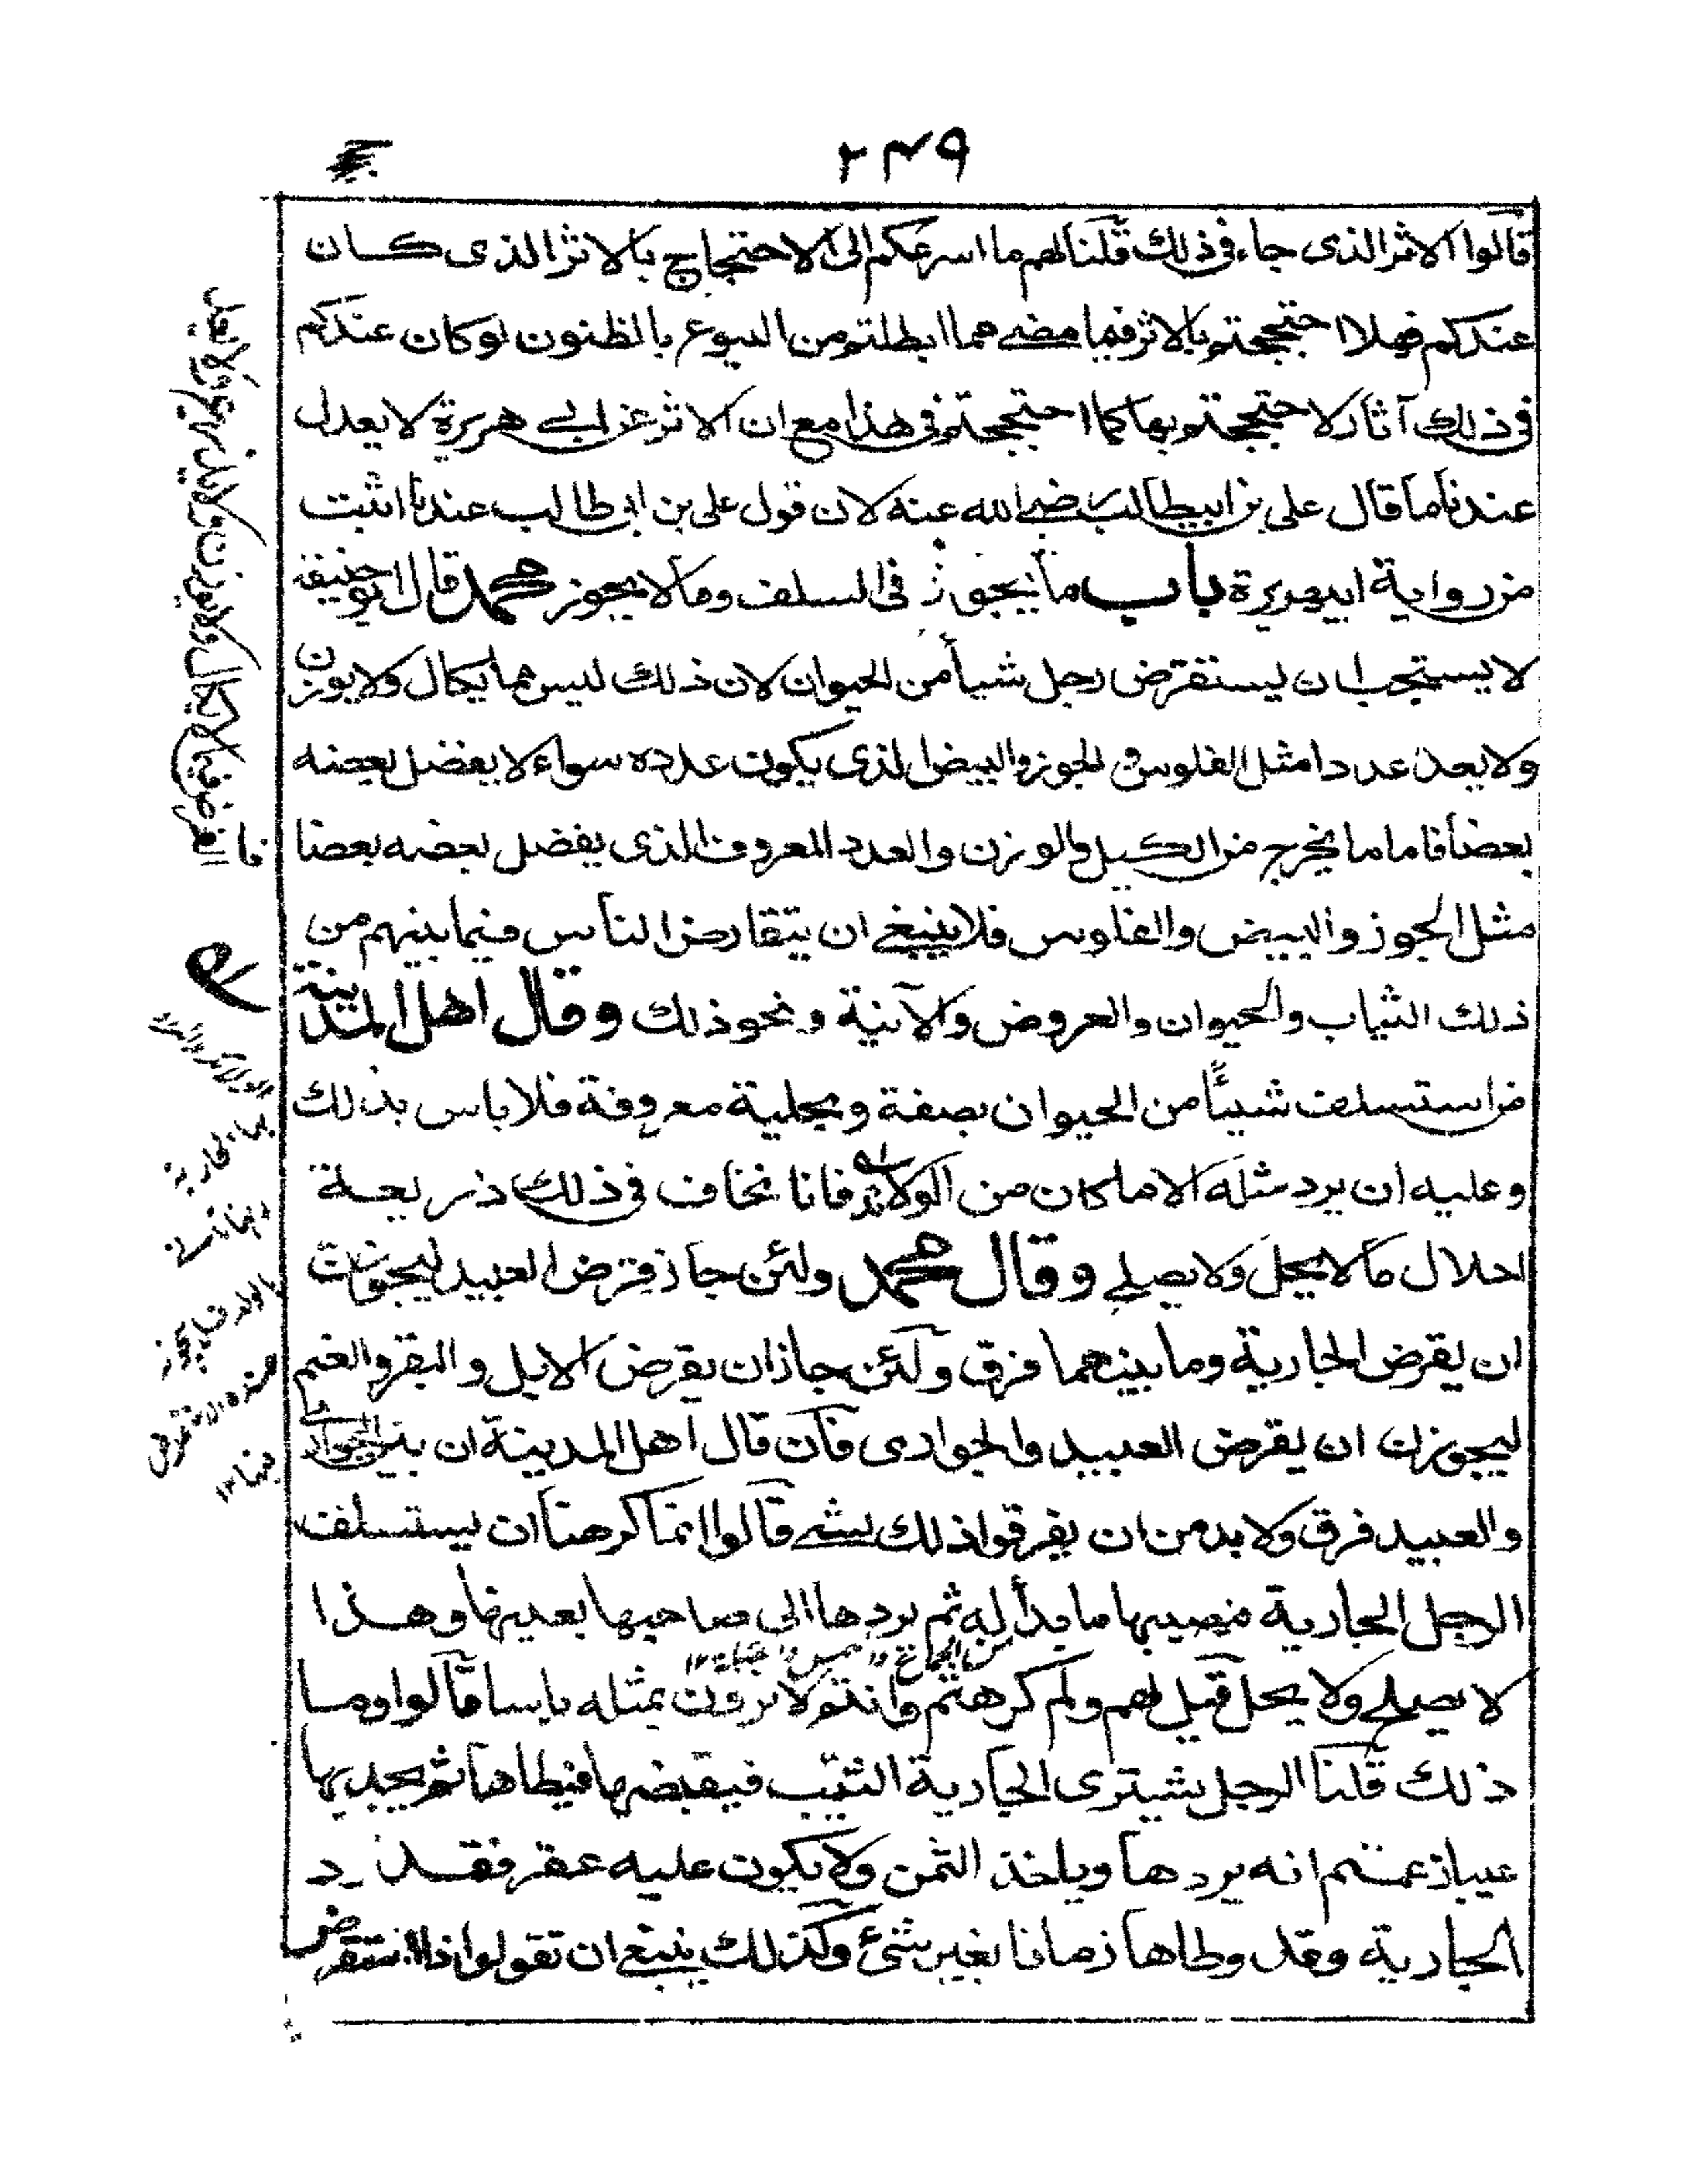 ٢٤٩
قالوا الاثر الذى جاء فى ذلك قلنا لهم ما اسرعكم الى الاحتجاج بالاثر الذى كان
عندكم فهلا احتججتم بالاثر فيما مضى مما ابطلتم من البيوع بالظنون لو كان عندكم
فى ذلك آثار لاحتججتم بها كما احتججتم فى هذا مع ان الاثر عن ابى هريرة لا يعدل
عندنا ما قال على بن ابيطالب رضى الله عنه لان قول على بن ابى طالب عندنا اثبت
من رواية ابيهريرة باب ما يجوز فى السلف وما لا يجوز محمد قال ابو حنيفة
لا يستحب ان يستقرض رجل شيأ من الحيوان لان ذلك ليس مما يكال ولا يوزن
ولا يعد عددا مثل الفلوس والجوز والبيض الذى يكون عدده سواء لا يفضل بعضه
بعضا فاما ما يخرج من الكيل والوزن والعدد المعروف الذى يفضل بعضه بعضا
مثل الجوز والبيض والفلوس فلا ينبغى ان يتقارض الناس فيما بينهم من
ذلك الثياب والحيوان والعروض والآنية ونحو ذلك وقال اهل المدينة
من استسلف شيئا من الحيوان بصفة وبحلية معروفة فلا باس بذلك
وعليه ان يرد مثله الا ما كان من الولائد فانا نخاف فى ذلك ذريعة
احلال ما لا يحل ولا يصلح وقال محمد ولئن جاز قرض العبيد ليجوزن
ان يقرض الجارية وما بينهما فرق ولئن جاز ان يقرض الابل والبقر والغنم
ليجوزن ان يقرض العبيد والجوارى فان قال اهل المدينة ان بين الجوارى
والعبيد فرق ولا بد من ان يفرقوا ذلك بشىء قالوا انما كرهنا ان يستسلف
الرجل الجارية فيصيبها ما بدأ له ثم يردها الى صاحبها بعينها وهذا
لا يصلح ولا يحل قيل لهم ولم كرهتم وانتم لا ترون بمثله بايسا قالوا وما
ذلك قلنا الرجل يشترى الجارية الثيب فيقبضها فيطاها ثم يجد بها
عيبا زعمتم انه يردها وياخذ الثمن ولا يكون عليه عقر فقد رد
الجارية وقد وطاها زمانا بغير شئ وكذلك ينبغى ان تقولوا اذا استقرض